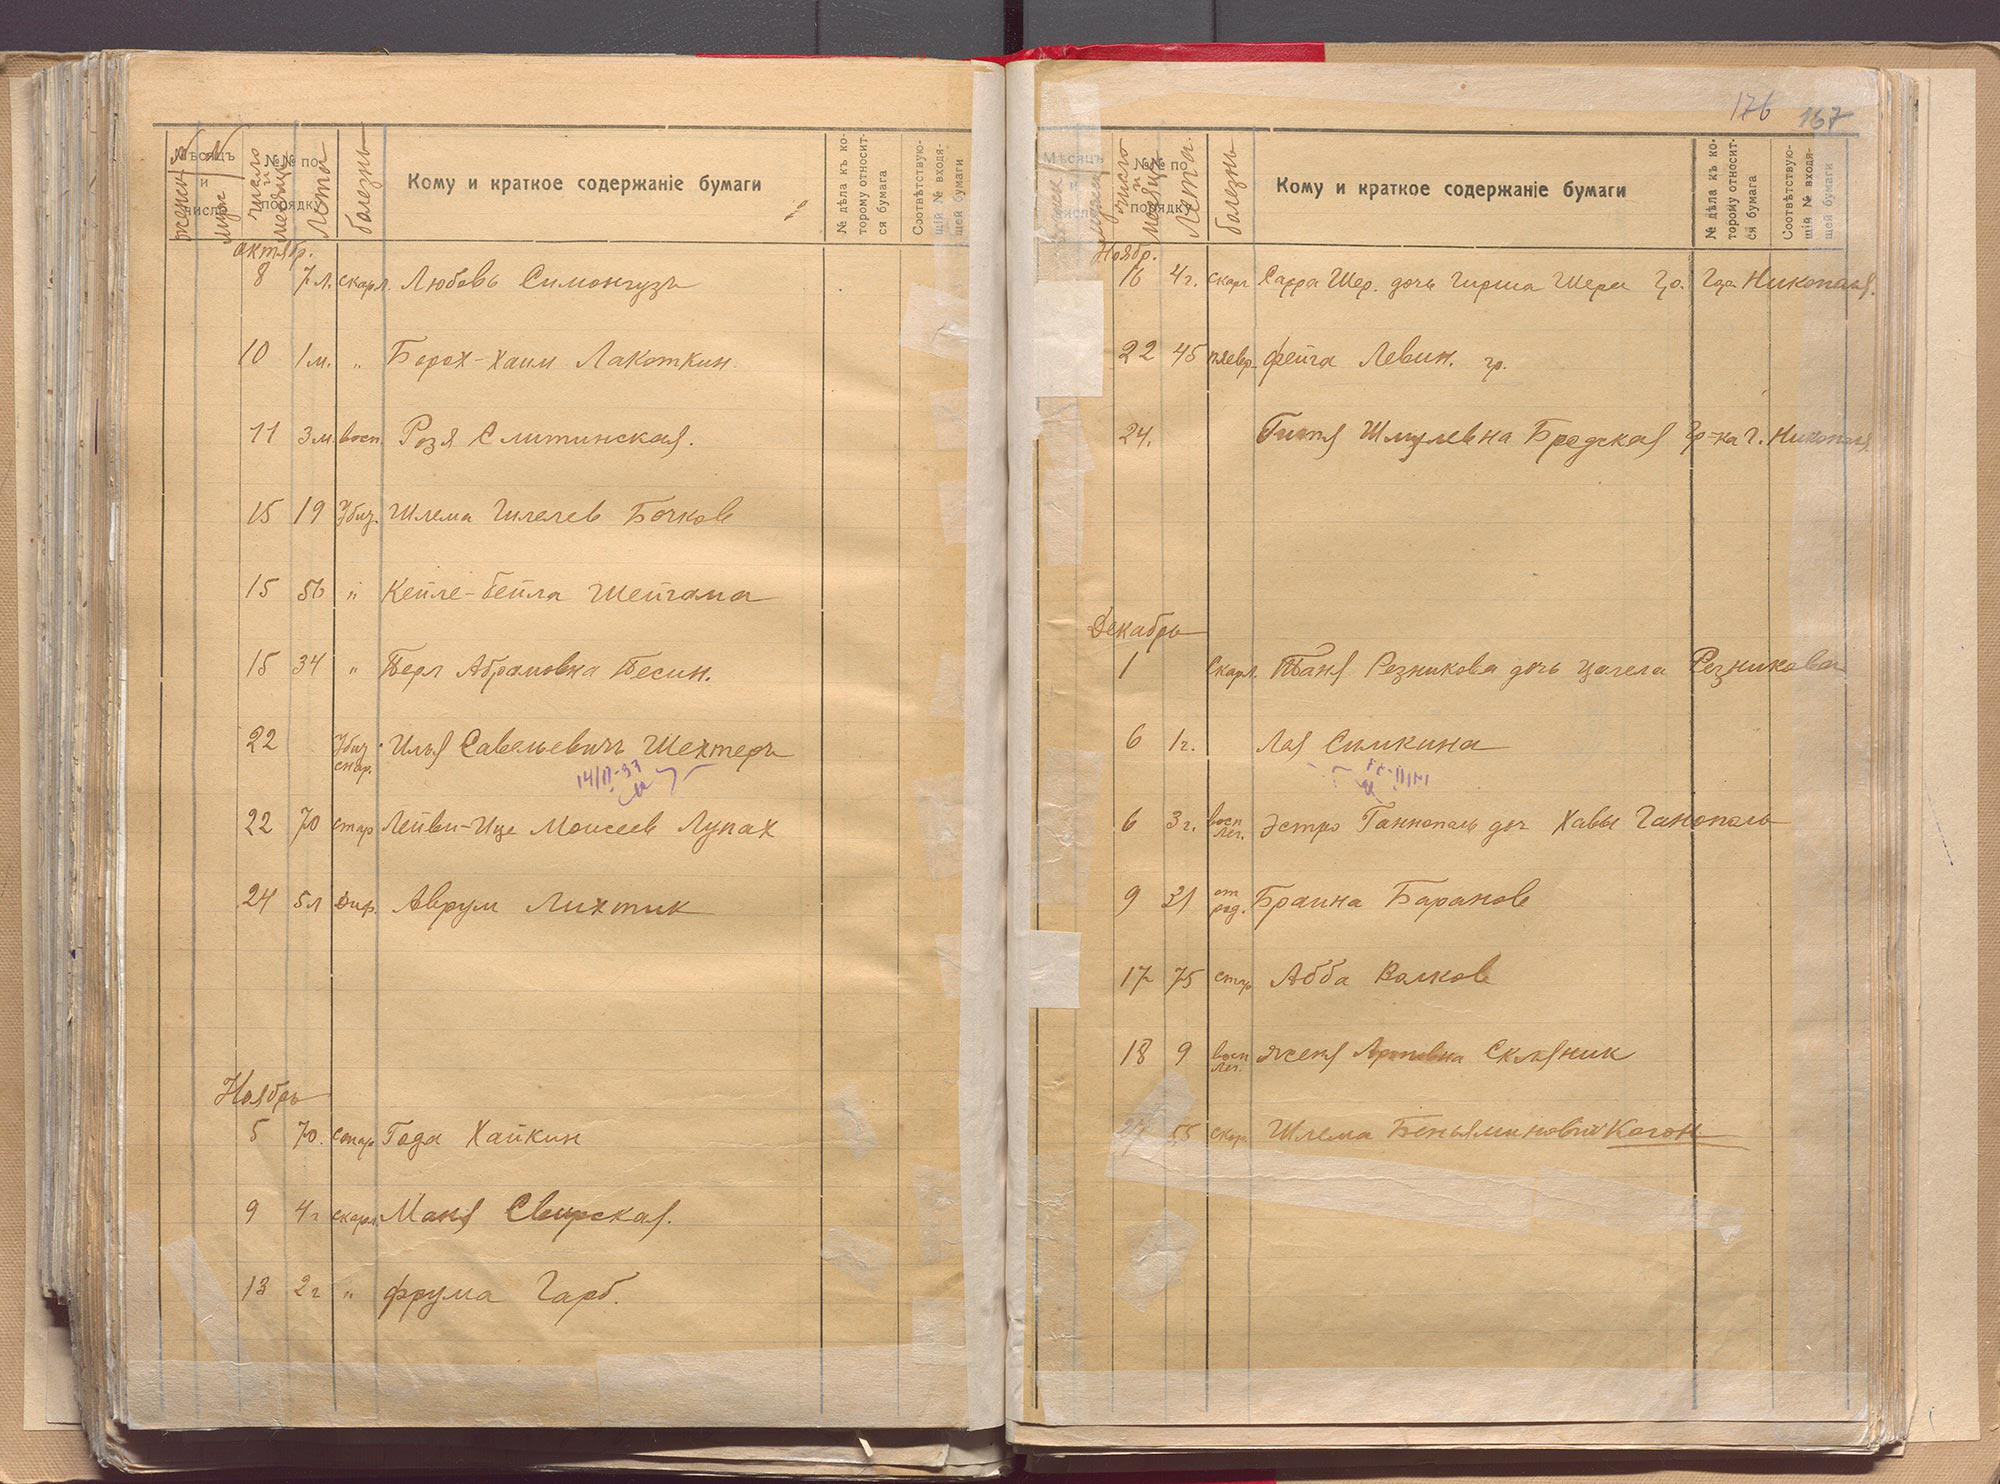 Мѣсяцъ и число
№№ по порядку
Кому и краткое содержаніе бумаги
№ дѣла къ которому относится бумага
Соотвѣтствующій № входящей бумаги
жен. муж. число и месяць Лѣта болезнь
октябр.
8 7 л. скарл. Любовь
10 1 м. „ Борох-Хаим Лакоткин.
11 3 м. восп. Розя Слитинская.
15 19 Убит. Шлема Бочков
15 56 „ Кейле-Бейла
15 34 „ Берл Абрамовна Песин.
22 Убиг. снар. Илья Савельевичъ Шехтеръ
14/II-37
22 70 стар Лейви-Ице Моисеев Лупах
24 5 л Дир. Аврум Лихтик
Ноябрь
5 70. стар Года Хайкин
9 4 г скарл Маня Свирская.
13 2 г „ Фрума Гарб.
176 167
Мѣсяцъ и число
№№ по порядку
Кому и краткое содержаніе бумаги
№ дѣла къ которому относится бумага
Соотвѣтствующій № входящей бумаги
число и месяць Лета болезнь
Ноябр.
16 4 г. скарл Сарра Шер. дочь Гирша Шера Никополя.
22 45 плевр. Фейга Левин. гр.
24. Гитя Шмулевна Бродская гр-ка г. Никополя
Декабрь
1 Скарл. Таня Резникова дочь Резникова
6 1 г. Лея Симкина
6 3 г. восп лег. Эстро Ганнополь доч Хавы Ганополь
9 31 от род. Браина Баранов
17 75 стар Абба Волков
18 9 восп лег. Женя Скляник
27 55 скар. Шлема Беньяминович Когон